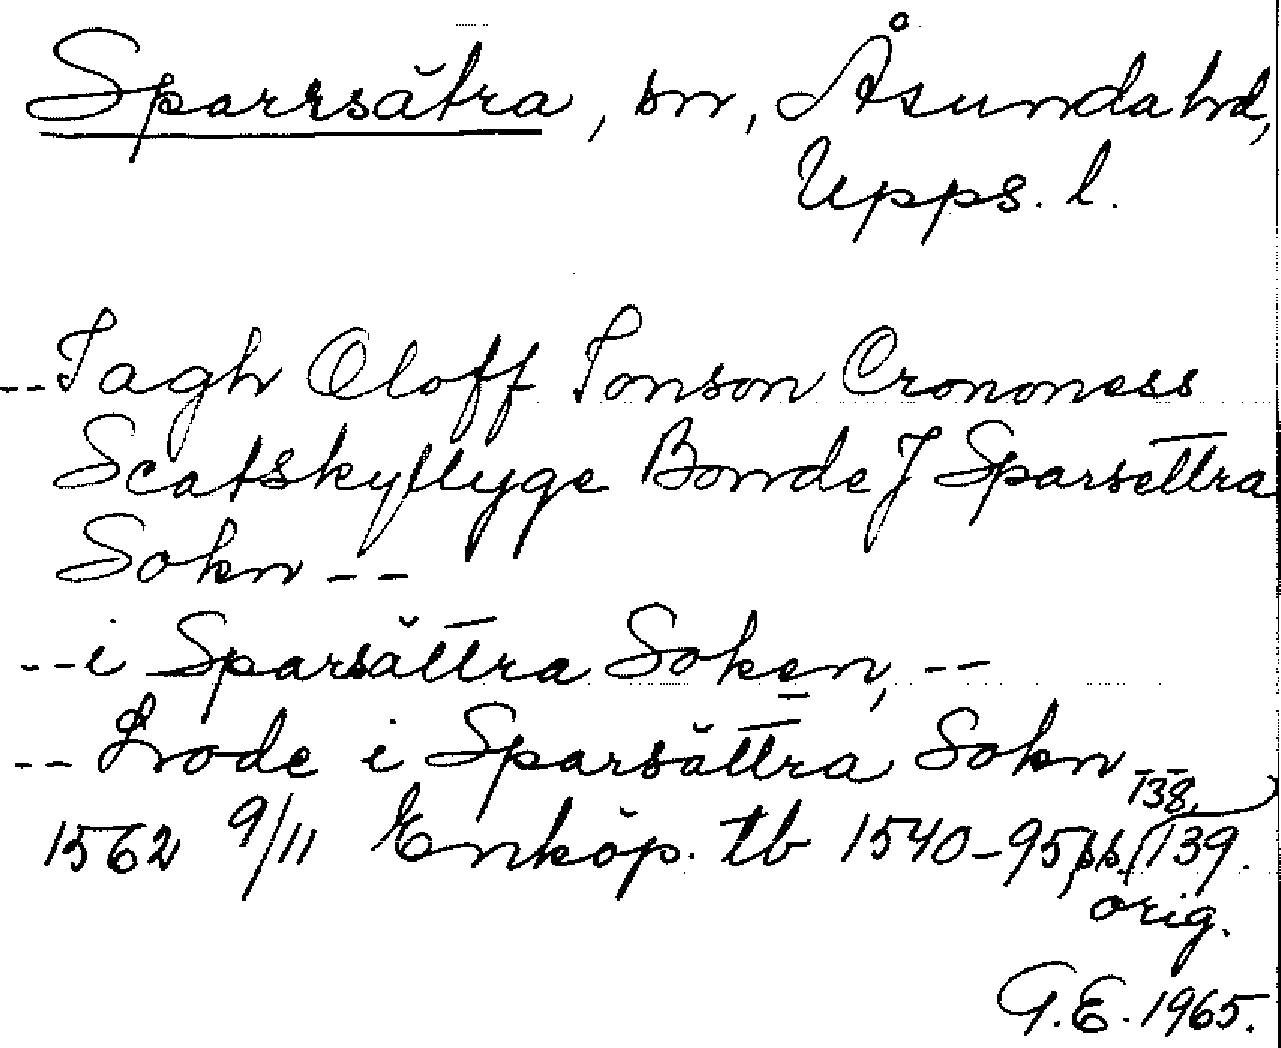 Sparrsätra, sn, Åsunda hd,
Upps. l.
-- Jagh Oloff Jonson Crononess
Scatskyllyge Bonde J Sparsettra
Sokn --
-- i Sparsättra Soken, --
-- Frode i Sparsättra Sokn --
1562 9/11 Enköp. tb 1540-95 ss. 138, 139.
orig.
G.E. 1965.